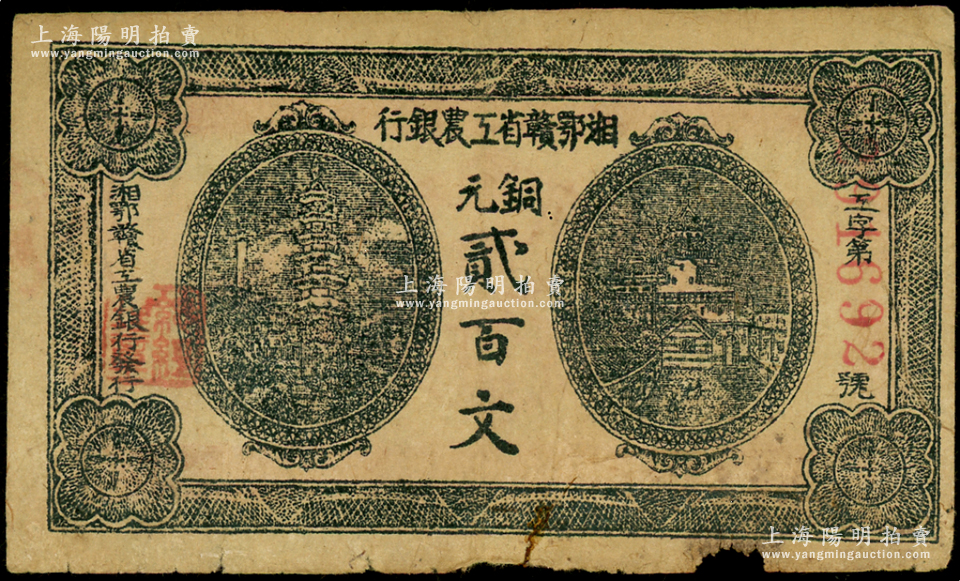 上海陽明拍賣
www.yangmingauction.com
上海陽明拍賣
www.yangmingauction.com
湘鄂贛省工農銀行
銅元
貳百文
工字第
01692
號
湘鄂贛省工農銀行發行
上海陽明拍賣
www.yangmingauction.com
上海陽明拍賣
www.yangmingauction.com